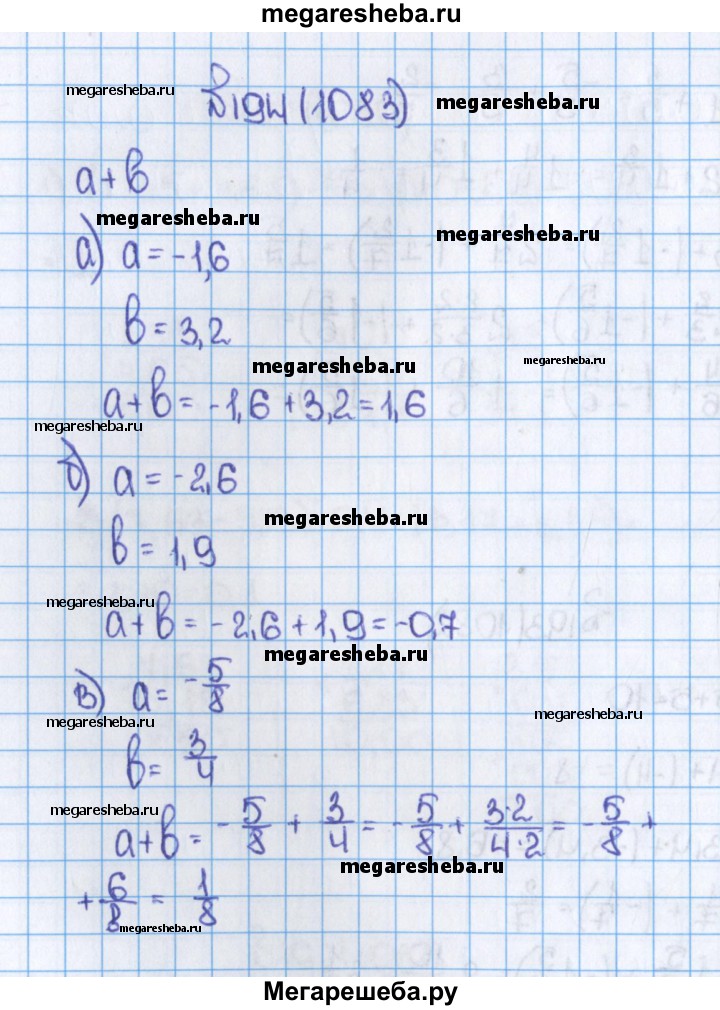 megaresheba.ru
megaresheba.ru
№194 (1083)
megaresheba.ru
a+b
megaresheba.ru
а) a = -1,6
megaresheba.ru
b = 3,2
megaresheba.ru
megaresheba.ru
a+b = -1,6 + 3,2 = 1,6
megaresheba.ru
б) a = -2,6
megaresheba.ru
b = 1,9
megaresheba.ru
megaresheba.ru
a+b = -2,6 + 1,9 = -0,7
megaresheba.ru
в) a = -5/8
megaresheba.ru
megaresheba.ru
b = 3/4
megaresheba.ru
a+b = -5/8 + 3/4 = -5/8 + 3·2/4·2 = -5/8 +
megaresheba.ru
+ 6/8 = 1/8
megaresheba.ru
Мегарешеба.ру